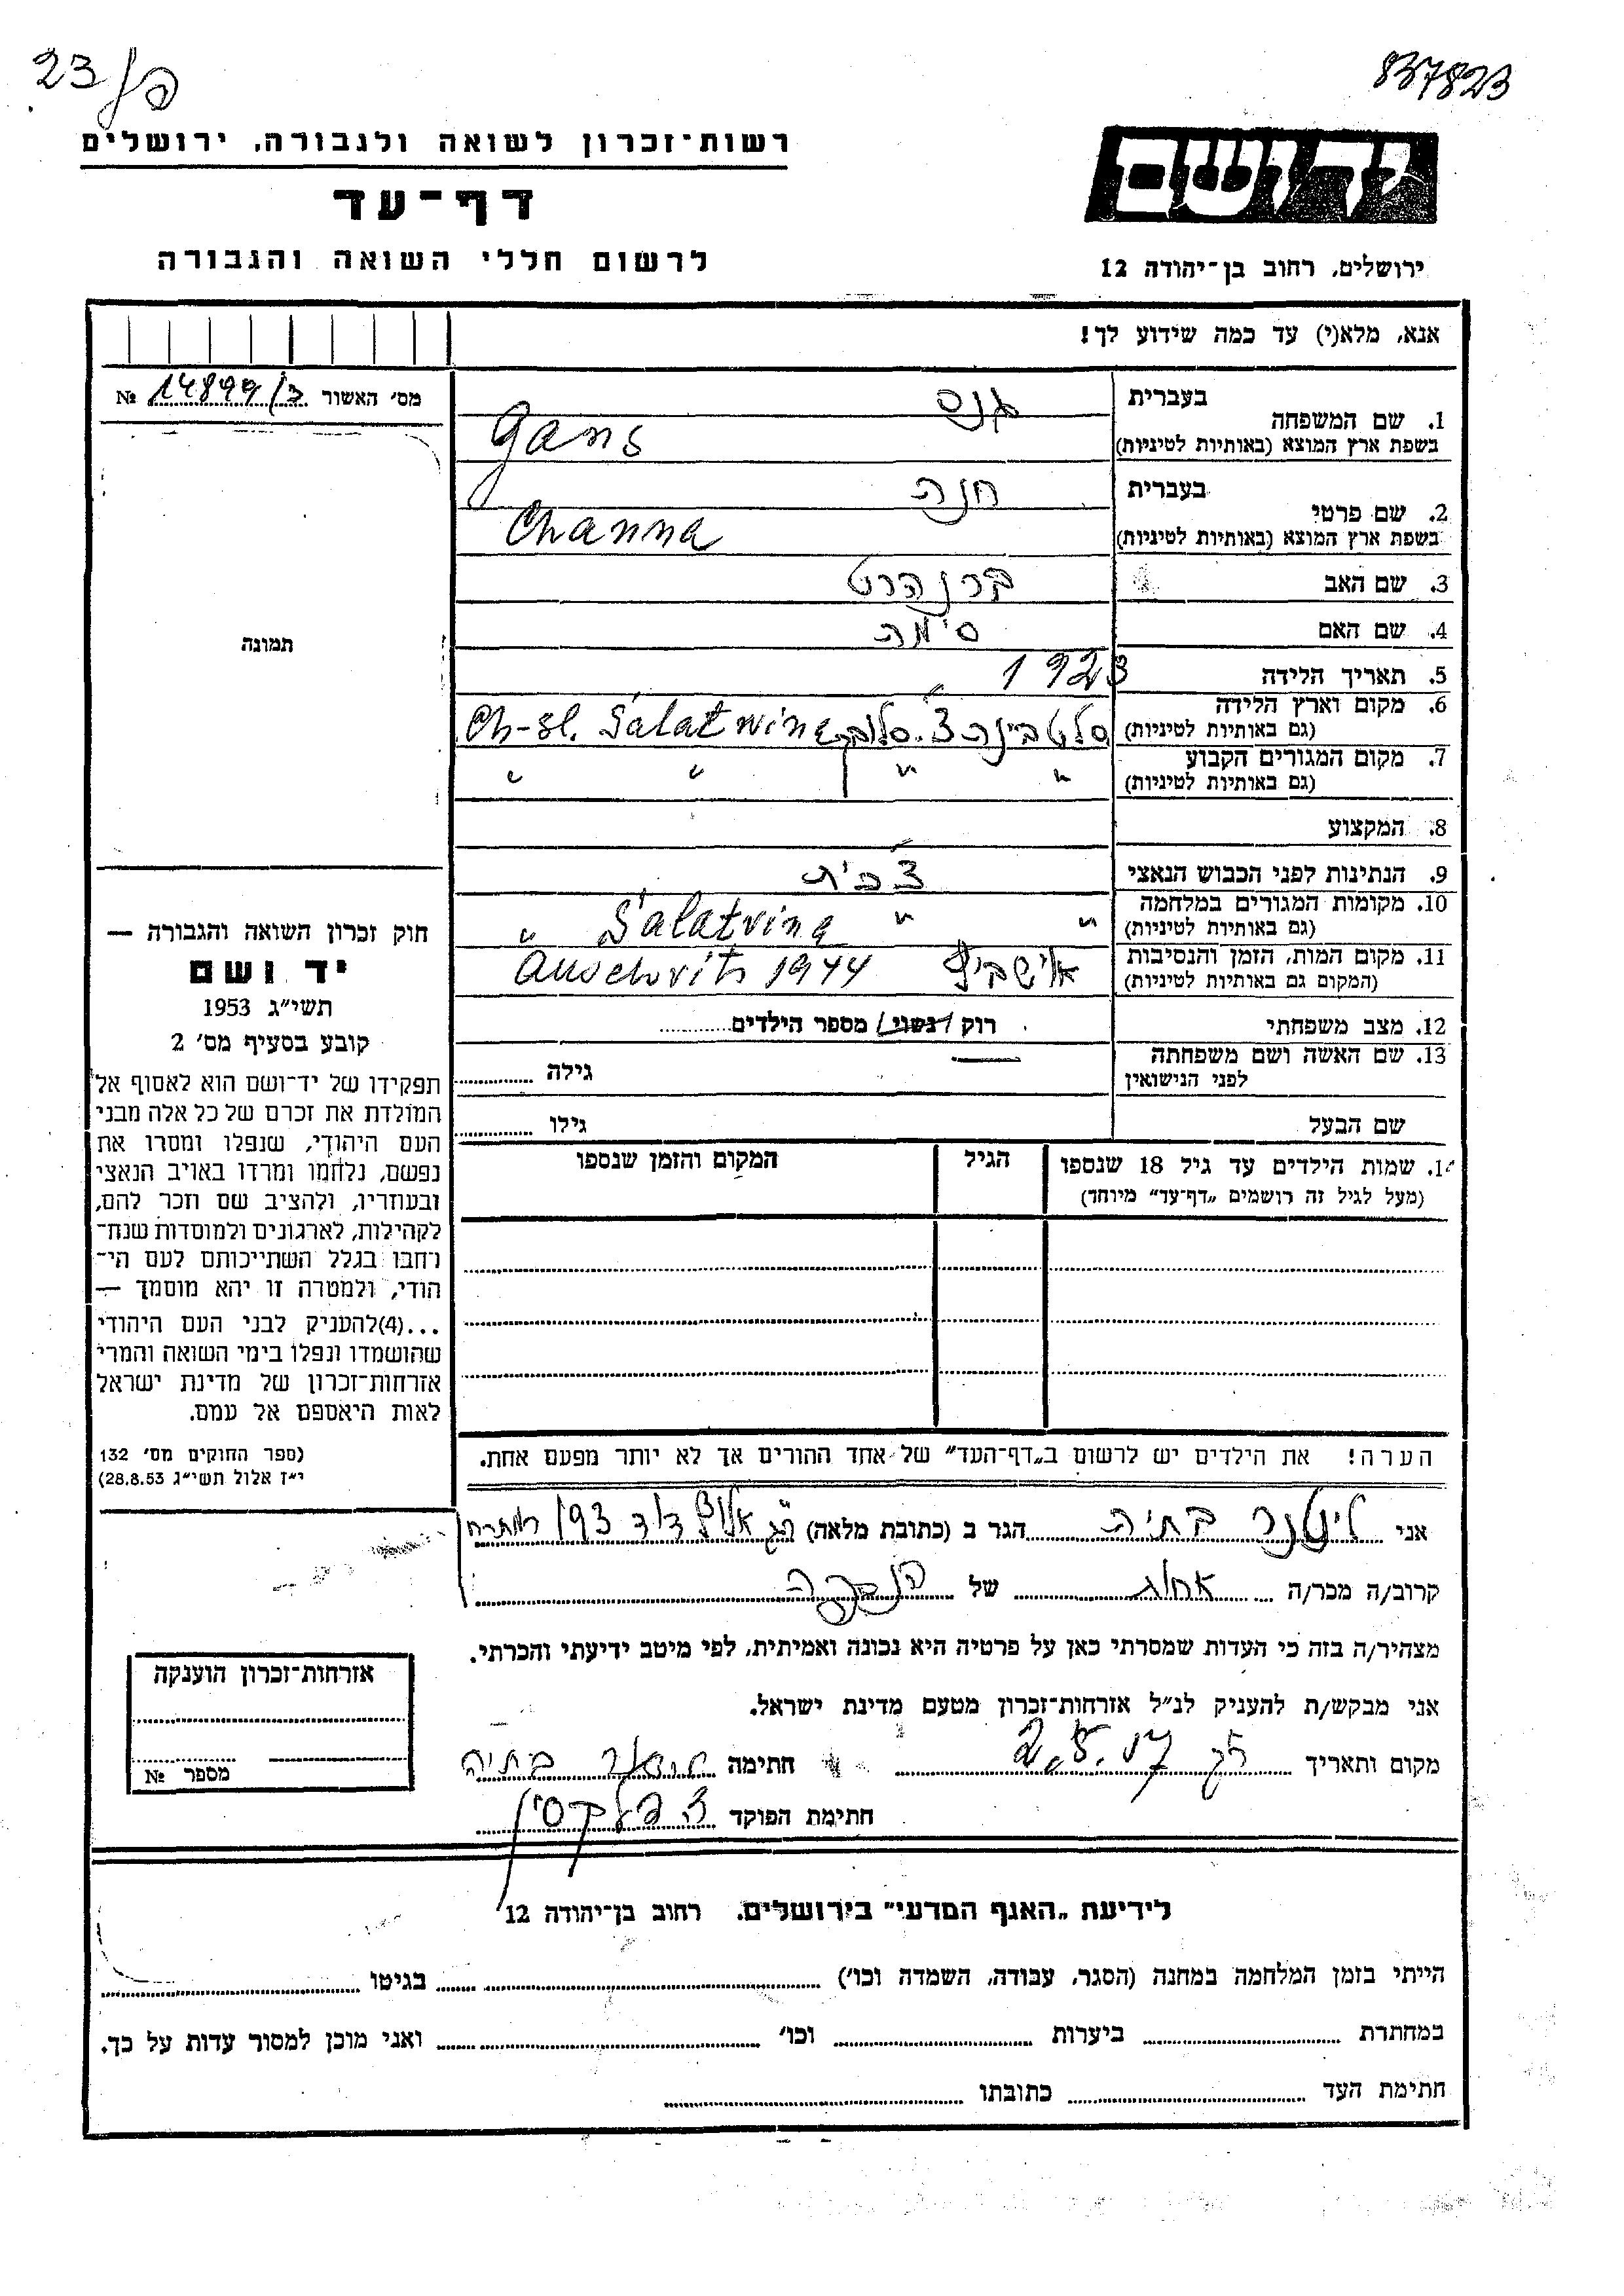 23
837823
ידושם
רשות-זכרון לשואה ולגבורה, ירושלים
דף-עד
לרשום חללי השואה והגבורה
ירושלים, רחוב בן-יהודה 12
אנא, מלא(י) עד כמה שידוע לך!
מס׳ האשור 14899/ב №
תמונה
חוק זכרון השואה והגבורה —
יד ושם
תשי״ג 1953
קובע בסעיף מס׳ 2
תפקידו של יד-ושם הוא לאסוף אל
המולדת את זכרם של כל אלה מבני
העם היהודי, שנפלו ומסרו את
נפשם, נלחמו ומרדו באויב הנאצי
ובעוזריו, ולהציב שם וזכר להם,
לקהילות, לארגונים ולמוסדות שנח-
רחבו בגלל השתייכותם לעם הי-
הודי, ולמטרה זו יהא מוסמך —
...(4)להעניק לבני העם היהודי
שהושמדו ונפלו בימי השואה והמרי
אזרחות-זכרון של מדינת ישראל
לאות היאספם אל עמם.
(ספר החוקים מס׳ 132
י״ז אלול תשי״ג 28.8.53)
בעברית גנס
1. שם המשפחה
בשפת ארץ המוצא (באותיות לטיניות) Gans
בעברית חנה
2. שם פרטי
בשפת ארץ המוצא (באותיות לטיניות) Channa
3. שם האב ברנהרט
4. שם האם סימה
5. תאריך הלידה 1923
6. מקום וארץ הלידה סלטבינה צ׳. סלוב Ch-sl. Salatwina
(גם באותיות לטיניות)
7. מקום המגורים הקבוע " " " "
(גם באותיות לטיניות)
8. המקצוע
9. הנתינות לפני הכבוש הנאצי צ׳כית
10. מקומות המגורים במלחמה " " Salatvina "
(גם באותיות לטיניות)
11. מקום המות, הזמן והנסיבות אושביץ Auschvits 1944
(המקום גם באותיות לטיניות)
12. מצב משפחתי רווק / נשוי / מספר הילדים
13. שם האשה ושם משפחתה גילה
לפני הנישואין
שם הבעל גילו
14. שמות הילדים עד גיל 18 שנספו הגיל המקום והזמן שנספו
(מעל לגיל זה רושמים „דף-עד״ מיוחד)
הערה! את הילדים יש לרשום ב„דף-העד״ של אחד ההורים אך לא יותר מפעם אחת.
אני בתיה הגר ב (כתובת מלאה) 193
קרוב/ה מכר/ה אחות של הנספה
מצהיר/ה בזה כי העדות שמסרתי כאן על פרטיה היא נכונה ואמיתית, לפי מיטב ידיעתי והכרתי.
אני מבקש/ת להעניק לנ״ל אזרחות-זכרון מטעם מדינת ישראל.
מקום ותאריך חתימה בתיה
חתימת הפוקד
אזרחות-זכרון הוענקה
מספר №
לידיעת „האגף המדעי״ בירושלים, רחוב בן-יהודה 12
הייתי בזמן המלחמה במחנה (הסגר, עבודה, השמדה וכו׳) בגיטו
במחתרת ביערות וכו׳ ואני מוכן למסור עדות על כך.
חתימת העד כתובתו